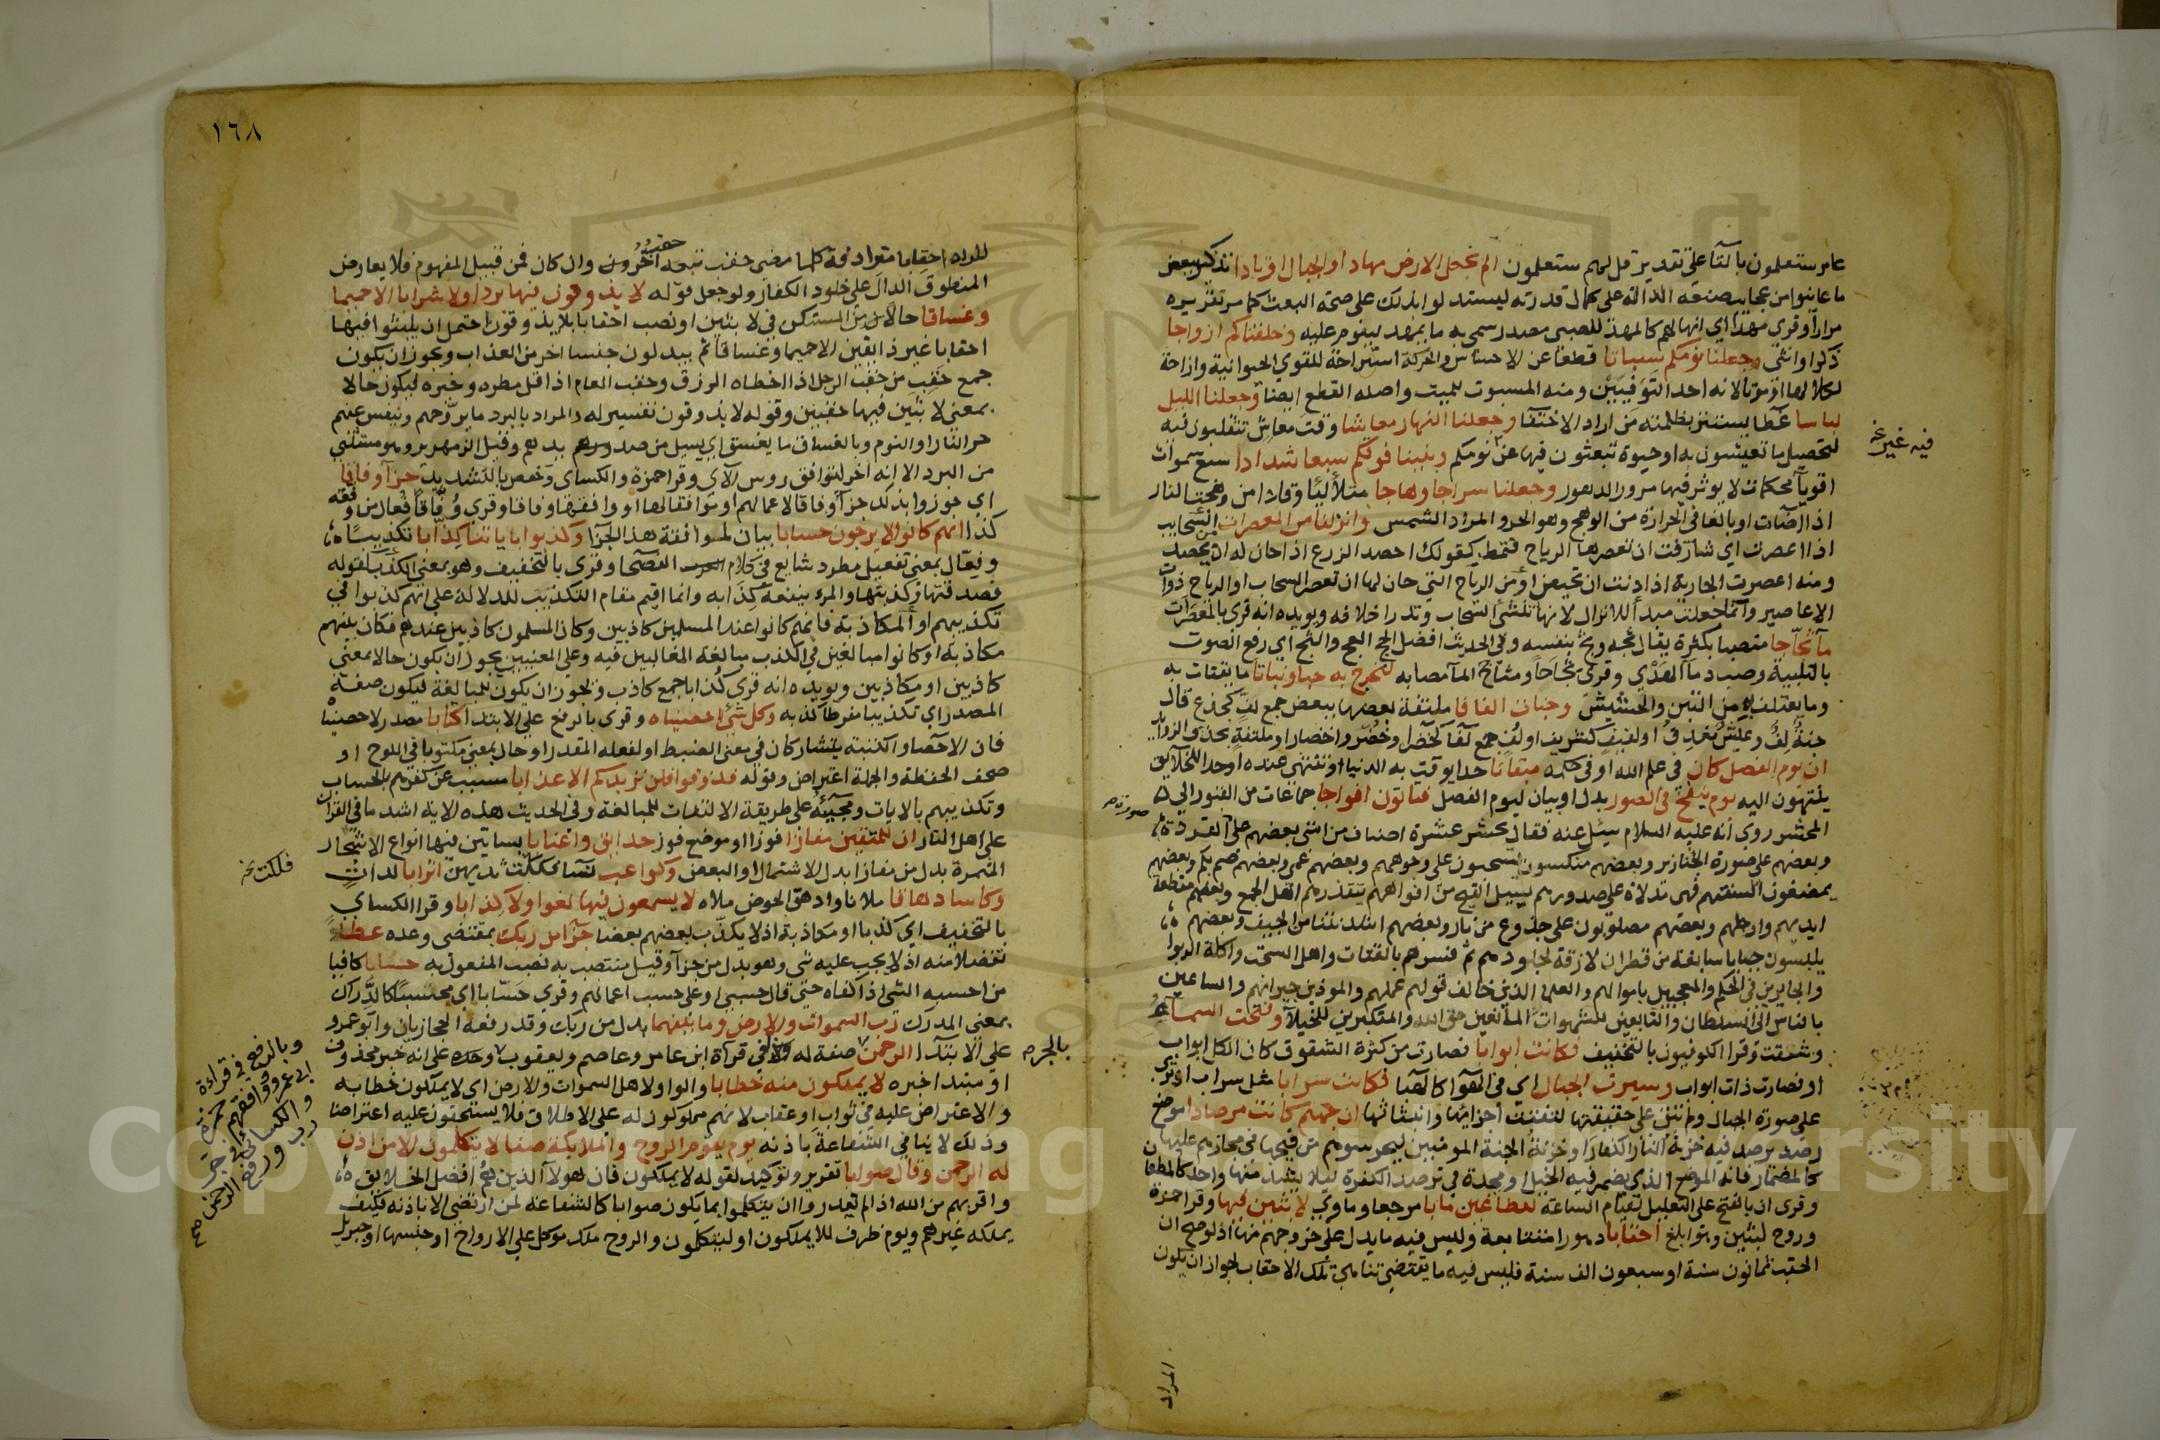 عامر ستعلمون بالتا على تقدير قل لهم ستعلمون الم نجعل الارض مهادا والجبال اوتادا تذكير ببعض
ما عاينوا من عجايب صنعه الدالة على كمال قدرته ليستدلوا بذلك على صحة البعث كما مر تقريره
مرارا وقرى مهدا اي انها لهم كالمهد للصبي مصدر سمي به ما يمهد لينوم عليه وخلقناكم ازواجا
ذكرا وانثى وجعلنا نومكم سباتا قطعا عن الاحساس والحركة استراحة للقوي الحيوانية وازاحة
لكلالها او موتا لانه احد التوفيين ومنه المسبوت للميت واصله القطع ايضا وجعلنا الليل
لباسا غطا يستتر بظلمته من اراد الاختفا وجعلنا النهار معاشا وقت معاش تتقلبون فيه
لتحصيل ما تعيشون به او حيوة تبعثون فيها عن نومكم وبنينا فوقكم سبعا شدادا سبع سموات
اقويا محكمات لا يوثر فيها مرور الدهور وجعلنا سراجا وهاجا متلالئا وقادا من وهجت النار
اذا اضات او بالغا في الحرارة من الوهج وهو الحر والمراد الشمس وانزلنا من المعصرات السحايب
اذا اعصرت اي شارفت ان تعصرها الرياح فتمطر كقولك احصد الزرع اذا حان له ان يحصد
ومنه اعصرت الجارية اذا دنت ان تحيض او من الرياح التي حان لها ان تعصر السحاب او الرياح ذوات
الاعاصير وانما جعلت مبدا للانزال لانها تنشئ السحاب وتدر اخلافه ويويده انه قرى بالمعصرات
ما ثجاجا منصبا بكثرة يقال ثجه وثج بنفسه وفي الحديث افضل الحج العج والثج اي رفع الصوت
بالتلبية وصب دما الهدي وقرى ثجاحا ومثاجح الما مصابه لنخرج به حبا ونباتا ما يقتات به
وما يعتلف به من التبن والحشيش وجنات الفافا ملتفة بعضها ببعض جمع لف كجذع قال
جنة لف وعيش مغدق او لفيف كشريف او لف جمع لفا كخضرا وخضر واخضار او ملتفة بحذف الزوايد
ان يوم الفصل كان في علم الله او في حكمه ميقاتا حدا يوقت به الدنيا وتنتهي عنده او حدا للخلايق
ينتهون اليه يوم ينفخ في الصور بدل او بيان ليوم الفصل فتاتون افواجا جماعات من القبور الي
المحشر روي انه عليه السلام سئل عنه فقال يحشر عشرة اصناف من امتي بعضهم على القردة
وبعضهم على صورة الخنازير وبعضهم منكسون يسحبون على وجوههم وبعضهم عمي وبعضهم صم بكم وبعضهم
يمضغون السنتهم فهى مدلاة على صدورهم يسيل القيح من افواههم يتقذرهم اهل الجمع وبعضهم مقطعة
ايديهم وارجلهم وبعضهم مصلوبون على جذوع من نار وبعضهم اشد نتنا من الجيف وبعضهم
يلبسون جبابا سابغة من قطران لازقة بجلودهم ثم فسرهم بالقتات واهل السحت واكلة الربوا
والجايرين في الحكم والمعجبين باعمالهم والعلما الذين خالف قولهم عملهم والموذين جيرانهم والساعين
بالناس الى السلطان والتابعين للشهوات المانعين حق الله والمتكبرين للخيلا وفتحت السماء
وشققت وقرا الكوفيون بالتخفيف فكانت ابوابا فصارت من كثرة الشقوق كان الكل ابواب
او فصارت ذات ابواب وسيرت الجبال اي في الهوا كالهبا فكانت سرابا مثل سراب اذ ترى
على صورة الجبال ولم تبق على حقيقتها لتفتت اجزائها وانبثاثها ان جهنم كانت مرصادا موضع
رصد يرصد فيه خزنة النار الكفار او خزنة الجنة المومنين ليحرسوهم من فيحها في مجازهم عليها
كالمضمار فانه الموضع الذي يضمر فيه الخيل او مجدة في ترصد الكفرة ليلا يشذ منها واحد كالمطعان
وقرى ان بالفتح على التعليل لقيام الساعة للطاغين مابا مرجعا وماوي لابثين فيها وقرا حمزة
وروح لبثين وهو ابلغ احقابا دهورا متتابعة وليس فيه ما يدل على خروجهم منها اذ لو صح ان
الحقب ثمانون سنة او سبعون الف سنة فليس فيه ما يقتضي تناهي تلك الاحقاب لجواز ان يكون
المراد
فيه غير نخ
صورة صح
١٦٨
المراد احقابا مترادفة كلما مضى حقب تبعه اخر وان كان فمن قبيل المفهوم فلا يعارض
حقب
المنطوق الدال على خلود الكفار ولو جعل قوله لا يذوقون فيها بردا ولا شرابا الا حميما
وغساقا حالا من المستكن في لابثين او نصب احقابا بلا يذوقون احتمل ان يلبثوا فيها
احقابا غير ذايقين الا حميما وغساقا ثم يبدلون جنسا اخر من العذاب ويجوز ان يكون
جمع حقب من حقب الرجل اذا اخطاه الرزق وحقب العام اذا قل مطره وخيره ليكون حالا
بمعنى لابثين فيها حقبين وقوله لا يذوقون تفسير له والمراد بالبرد ما يروحهم وينفس عنهم
حر النار او النوم وبالغساق ما يغسق اي يسيل من صديدهم وقيل الزمهرير وهو مستثنى
من البرد الا انه اخر لتوافق روس الآي وقرا حمزة والكساى وحفص بالتشديد جزا وفاقا
اي جوزوا بذلك جزا وفاقا لاعمالهم او موافقا لها او وافقها وفاقا وقرى وفاقا فعال من وفقه
كذا انهم كانوا لا يرجون حسابا بيان لما وافقه هذا الجزا وكذبوا باياتنا كذابا تكذيبا
وفعال بمعنى تفعيل مطرد شايع في كلام الفصحا وقرى بالتخفيف وهو بمعنى الكذب كقوله
فصدقتها وكذبتها والمرء ينفعه كذابه وانما اقيم مقام التكذيب للدلالة على انهم كذبوا في
تكذيبهم او المكاذبة فانهم كانوا عند المسلمين كاذبين وكان المسلمون كاذبين عندهم فكان بينهم
مكاذبة او كانوا مبالغين في الكذب مبالغة المغالبين فيه وعلى المعنيين يجوز ان يكون حالا بمعنى
كاذبين او مكاذبين ويويده انه قرى كذابا جمع كاذب ويجوز ان يكون للمبالغة فيكون صفة
المصدر اي تكذيبا مفرطا كذبه وكل شئ احصيناه وقرى بالرفع على الابتدا كتابا مصدر لاحصيناه
فان الاحصا والكتبة يتشاركان في معنى الضبط او لفعله المقدر او حال بمعنى مكتوبا في اللوح او
صحف الحفظة والجملة اعتراض وقوله فذوقوا فلن نزيدكم الا عذابا مسبب عن كفرهم بالحساب
وتكذيبهم بالايات ومجيئه على طريقة الالتفات للمبالغة وفي الحديث هذه الاية اشد ما في القران
على اهل النار ان للمتقين مفازا فوزا او موضع فوز حدايق واعنابا بساتين فيها انواع الاشجار
المثمرة بدل من مفازا بدل الاشتمال او البعض وكواعب نسا فلكت ثديهن اترابا لدات
وكاسا دهاقا ملانا وادهق الحوض ملاه لا يسمعون فيها لغوا ولا كذابا وقرا الكساي
بالتخفيف اي كذبا او مكاذبة اذ لا يكذب بعضهم بعضا جزا من ربك بمقتضى وعده عطا
تفضلا منه اذ لا يجب عليه شي وهو بدل من جزا وقيل منتصب به نصب المفعول به حسابا كافيا
من احسبه الشئ اذا كفاه حتى قال حسبي او على حسب اعمالهم وقرى حسابا اي محسبا كالدراك
بمعنى المدرك رب السموات والارض وما بينهما بدل من ربك وقد رفعه الحجازيان وابو عمرو
على الابتدا الرحمن صفة له في قراة ابن عامر وعاصم ويعقوب وحده على انه خبر محذوف
او مبتدا خبره لا يملكون منه خطابا والواو لاهل السموات والارض اي لا يملكون خطابه
والاعتراض عليه في ثواب او عقاب لانهم مملوكون له على الاطلاق فلا يستحقون عليه اعتراضا
وذلك لا ينافي الشفاعة باذنه يوم يقوم الروح والملايكة صفا لا يتكلمون الا من اذن
له الرحمن وقال صوابا تقرير وتوكيد لقوله لا يملكون فان هولا الذين هم افضل الخلايق
واقربهم من الله اذا لم يقدروا ان يتكلموا بما يكون صوابا كالشفاعة لمن ارتضى الا باذنه فكيف
يملكه غيرهم ويوم ظرف للا يملكون او ليتكلمون والروح ملك موكل على الارواح او جنسها او جبريل
فلكت نخ
بالجر صح
وبالرفع في قراءة
ابي عمرو